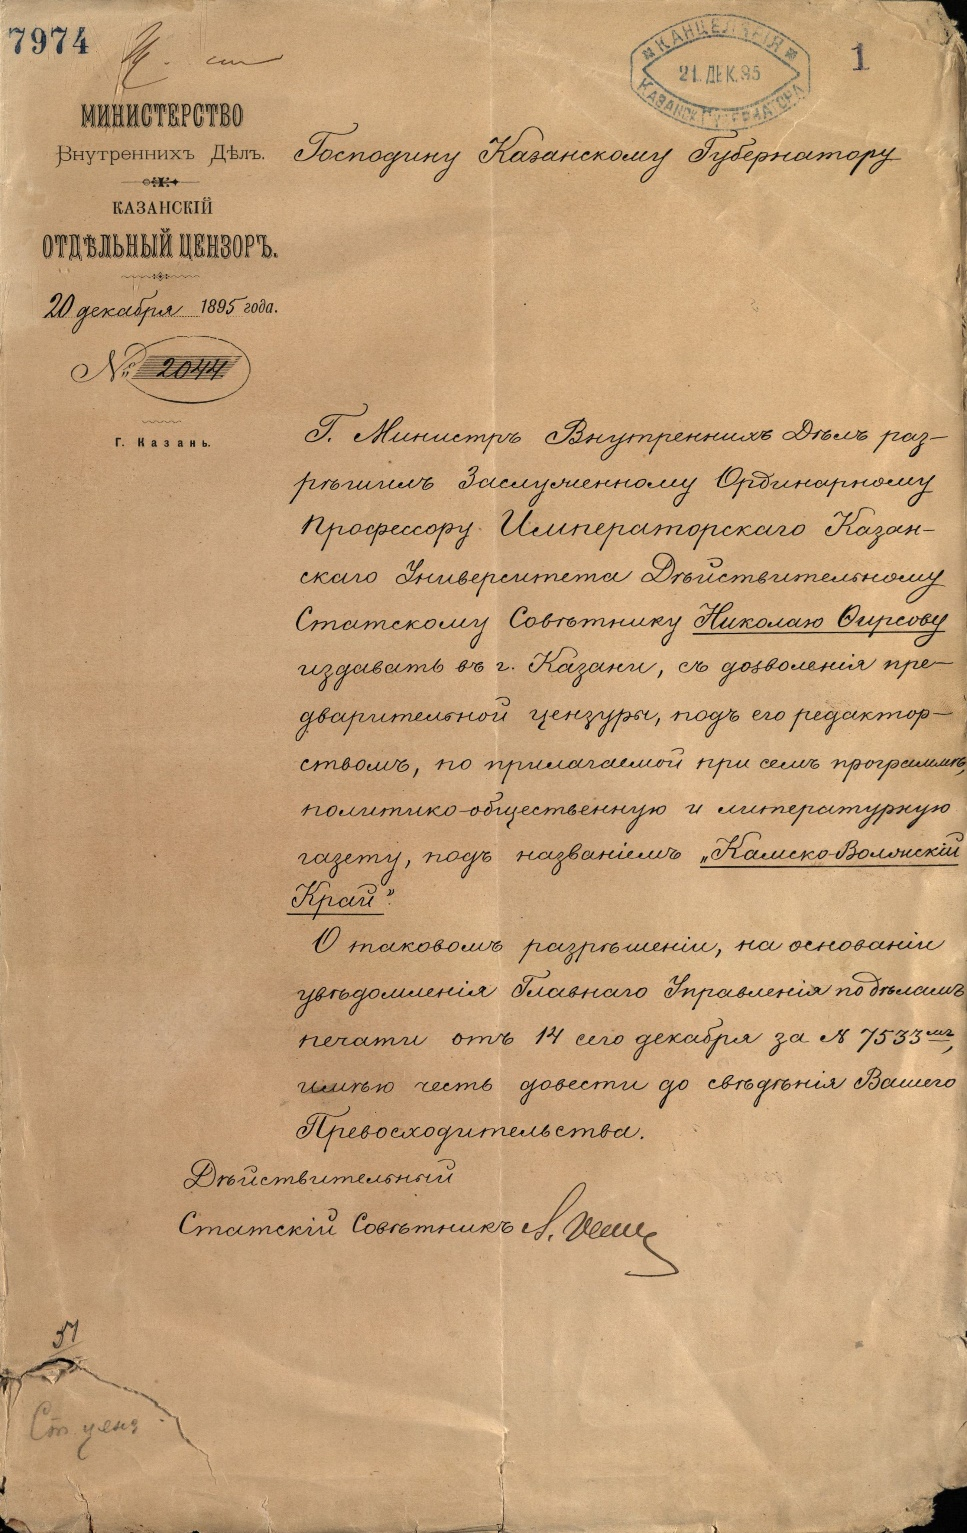 7974
КАНЦЕЛЯРІЯ
21. ДЕК. 95
КАЗАНСК. ГУБЕРНАТОРА
1
МИНИСТЕРСТВО
Внутреннихъ Дѣлъ.
КАЗАНСКІЙ
ОТДѢЛЬНЫЙ ЦЕНЗОРЪ.
20 декабря 1895 года.
№ 2044
Г. Казань.
Господину Казанскому Губернатору
Г. Министръ Внутреннихъ Дѣлъ раз-
рѣшилъ Заслуженному Ординарному
Профессору Императорскаго Казан-
скаго Университета Дѣйствительному
Статскому Совѣтнику Николаю Ѳирсову
издавать въ г. Казани, съ дозволенія пре-
дварительной цензуры, подъ его редактор-
ствомъ, по прилагаемой при семъ программѣ,
политико-общественную и литературную
газету, подъ названіемъ „Камско-Волжскій
Край“.
О таковомъ разрѣшеніи, на основаніи
увѣдомленія Главнаго Управленія по дѣламъ
печати отъ 14 сего декабря за № 7533мъ,
имѣю честь довести до свѣдѣнія Вашего
Превосходительства.
Дѣйствительный
Статскій Совѣтникъ
51